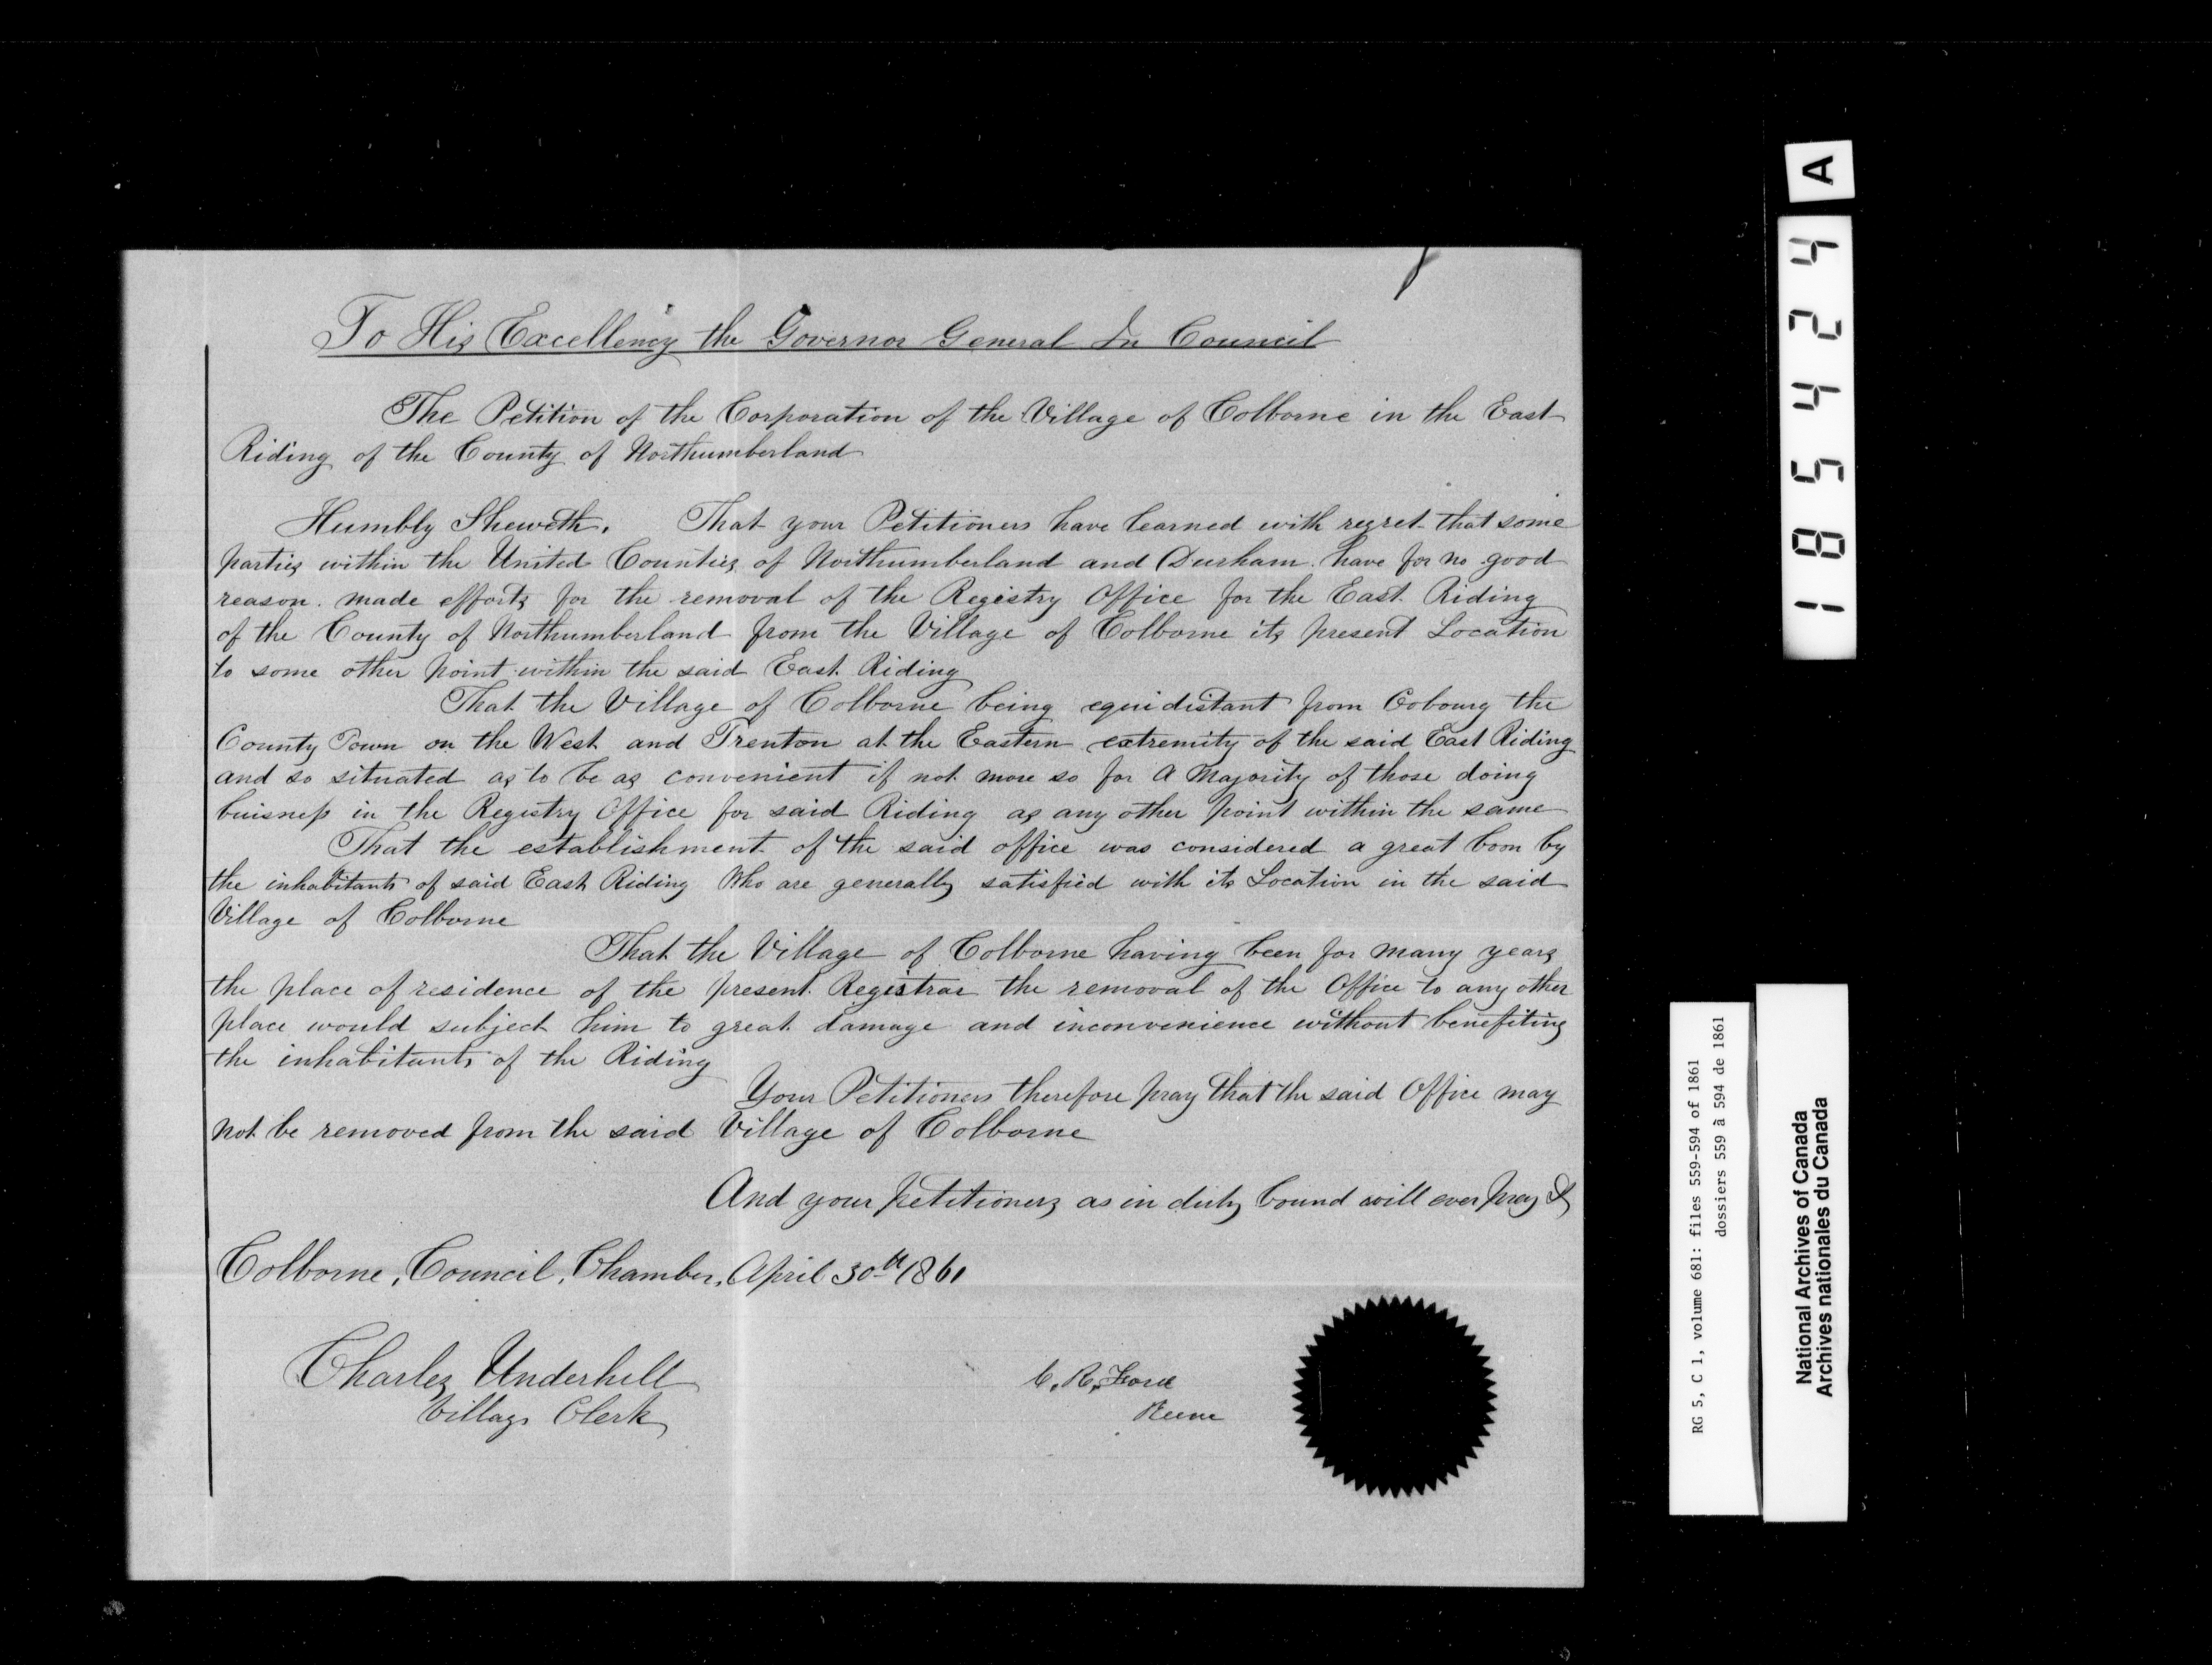 To His Excellency the Governor General In Council
The Petition of the Corporation of the Village of Colborne in the East
Riding of the County of Northumberland
Humbly Sheweth. That your Petitioners have learned with regret that some
parties within the United Counties of Northumberland and Durham have for no good
reason made efforts for the removal of the Registry Office for the East Riding
of the County of Northumberland from the Village of Colborne its present Location
to some other point within the said East Riding
That the Village of Colborne being equidistant from Cobourg the
County Town on the West and Trenton at the Eastern extremity of the said East Riding
and so situated as to be as convenient if not more so for a Majority of those doing
buisness in the Registry Office for said Riding as any other point within the same
That the establishment of the said office was considered a great boon by
the inhabitants of said East Riding Who are generally satisfied with its Location in the said
Village of Colborne
That the Village of Colborne having been for many years
the place of residence of the present Registrar the removal of the Office to any other
place would subject him to great damage and inconvenience without benefiting
the inhabitants of the Riding
Your Petitioners therefore pray that the said Office may
not be removed from the said Village of Colborne
And your petitioners as in duty bound will ever pray &
Colborne, Council, Chamber, April 30th 1861
Charles Underhill
Village Clerk
C. R. Ford
Reeve
185424 A
RG 5, C 1, volume 681: files 559-594 of 1861
dossiers 559 à 594 de 1861
National Archives of Canada
Archives nationales du Canada